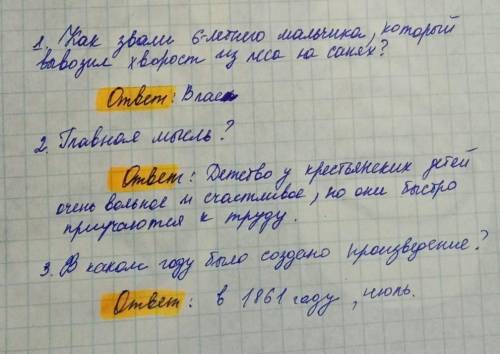 1. Как звали 6-летнего мальчика, который
вывозил хворост из леса на санях?
Ответ: Влас
2. Главная мысль?
Ответ: Детство у крестьянских детей
очень вольное и счастливое, но они быстро
приучаются к труду.
3. В каком году было создано произведение?
Ответ: в 1861 году, июль.